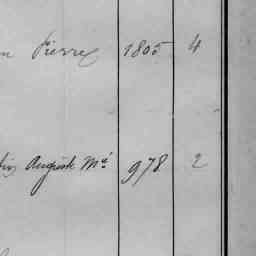 Pierre 1805 4
Auguste Mé 978 2